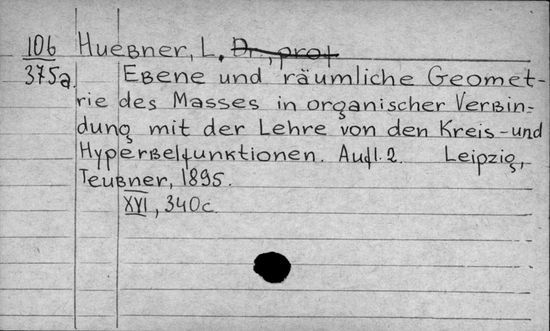 106 Huebner, L. Dr., prof
375a. Ebene und räumliche Geomet-
rie des Masses in organischer Verbin-
dung mit der Lehre von den Kreis- und
Hyperbelfunktionen. Aufl. 2. Leipzig,
Teubner, 1895.
XVI, 340c.